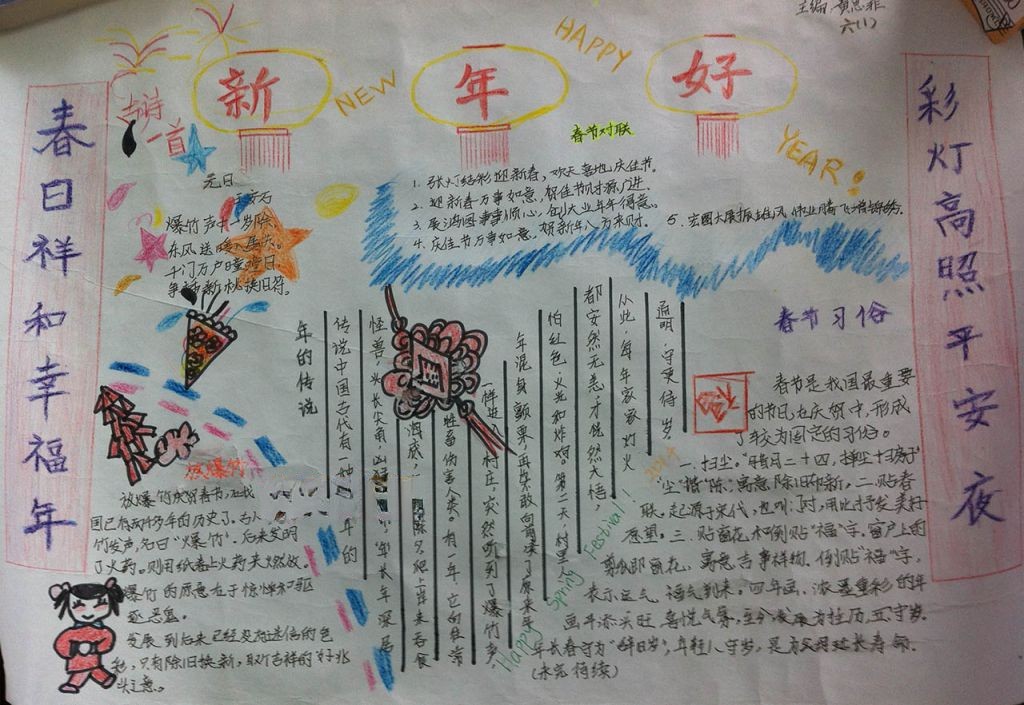 主编 黄思菲
六(1)
HAPPY
新年好
NEW
YEAR!
春日祥和幸福年
彩灯高照平安夜
古诗一首
元日
王安石
爆竹声中一岁除
东风送暖入屠苏。
千门万户曈曈日
争市新桃换旧符。
春节对联
1. 张灯结彩迎新春，欢天喜地庆佳节。
2. 迎新春万事如意，贺佳节财源广进。
3. 展鸿图事事顺心，创大业年年得意。
4. 庆佳节万事如意，贺新年八方来财。
5. 宏图大展
年的传说
传说中国古代有一种
年的
怪兽，头长尖角
年长年深居
爬上岸来吞食
牲畜伤害人类。有一年，它
村庄，突然听到了爆竹声
年浑身颤栗，再
怕红色、火光和炸响。第二天，村里
都安然无恙才恍然大悟，
从此，每年家家灯火
通明，守更待岁。
放爆竹
放爆竹庆贺春节，在我
国已有许多年的历史了。古人
竹发声，名曰“爆竹”。后来发明
了火药。则用纸卷上火药来燃放。
爆竹的原意在于惊惮和驱
逐恶鬼。
发展到后来已经没有迷信的色
彩，只有除旧换新，取个吉祥的好兆
头之意。
福
Happy Spring Festival!
春节习俗
春节是我国最重要
的节日，在庆贺中，形成
了较为固定的习俗。
一.扫尘。“腊月二十四，掸尘扫房子”
“尘”“陈”，寓意除旧布新。二.贴春
联。起源于宋代，也叫门对，用此抒发美好
愿望。三.贴窗花，和倒贴“福”字。窗户上的
剪纸即窗花，寓意吉事祥物，倒贴“福”字，
表示运气，福气到来。四年画，浓墨重彩的年
画平添兴旺、喜悦气氛，至今发展为挂历，五.守岁。
年长者守为“辞旧岁”；年轻人守岁，是为父母延长寿命。
（未完待续）